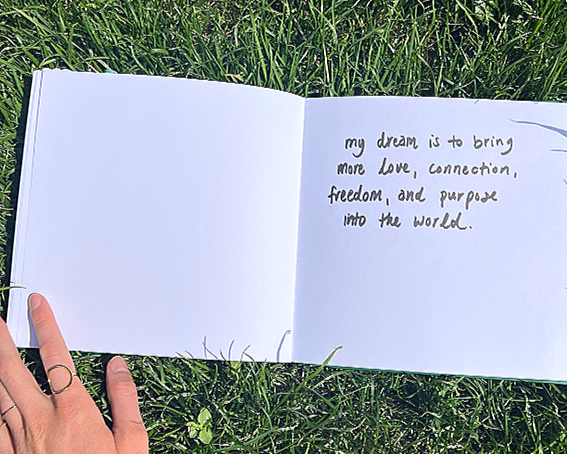 my dream is to bring
more love, connection,
freedom, and purpose
into the world.